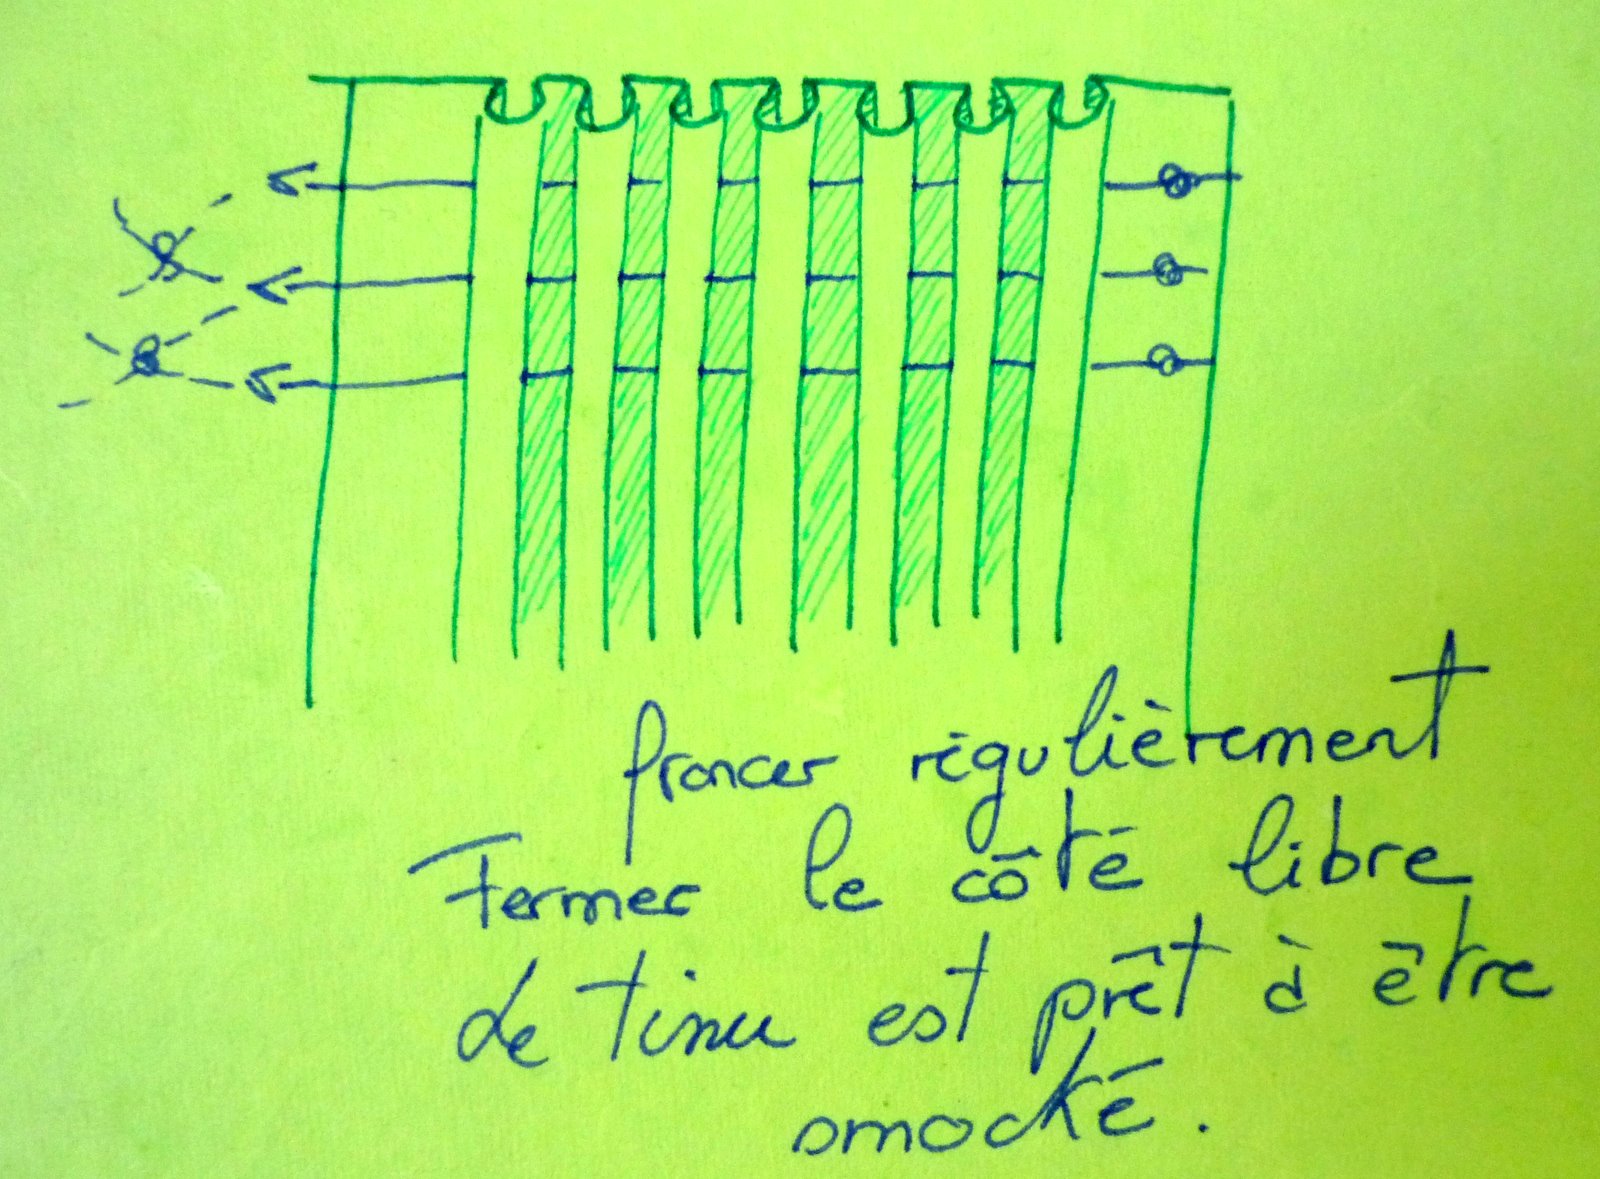 froncer régulièrement
Fermer le côté libre
Le tissu est prêt à être
smocké.